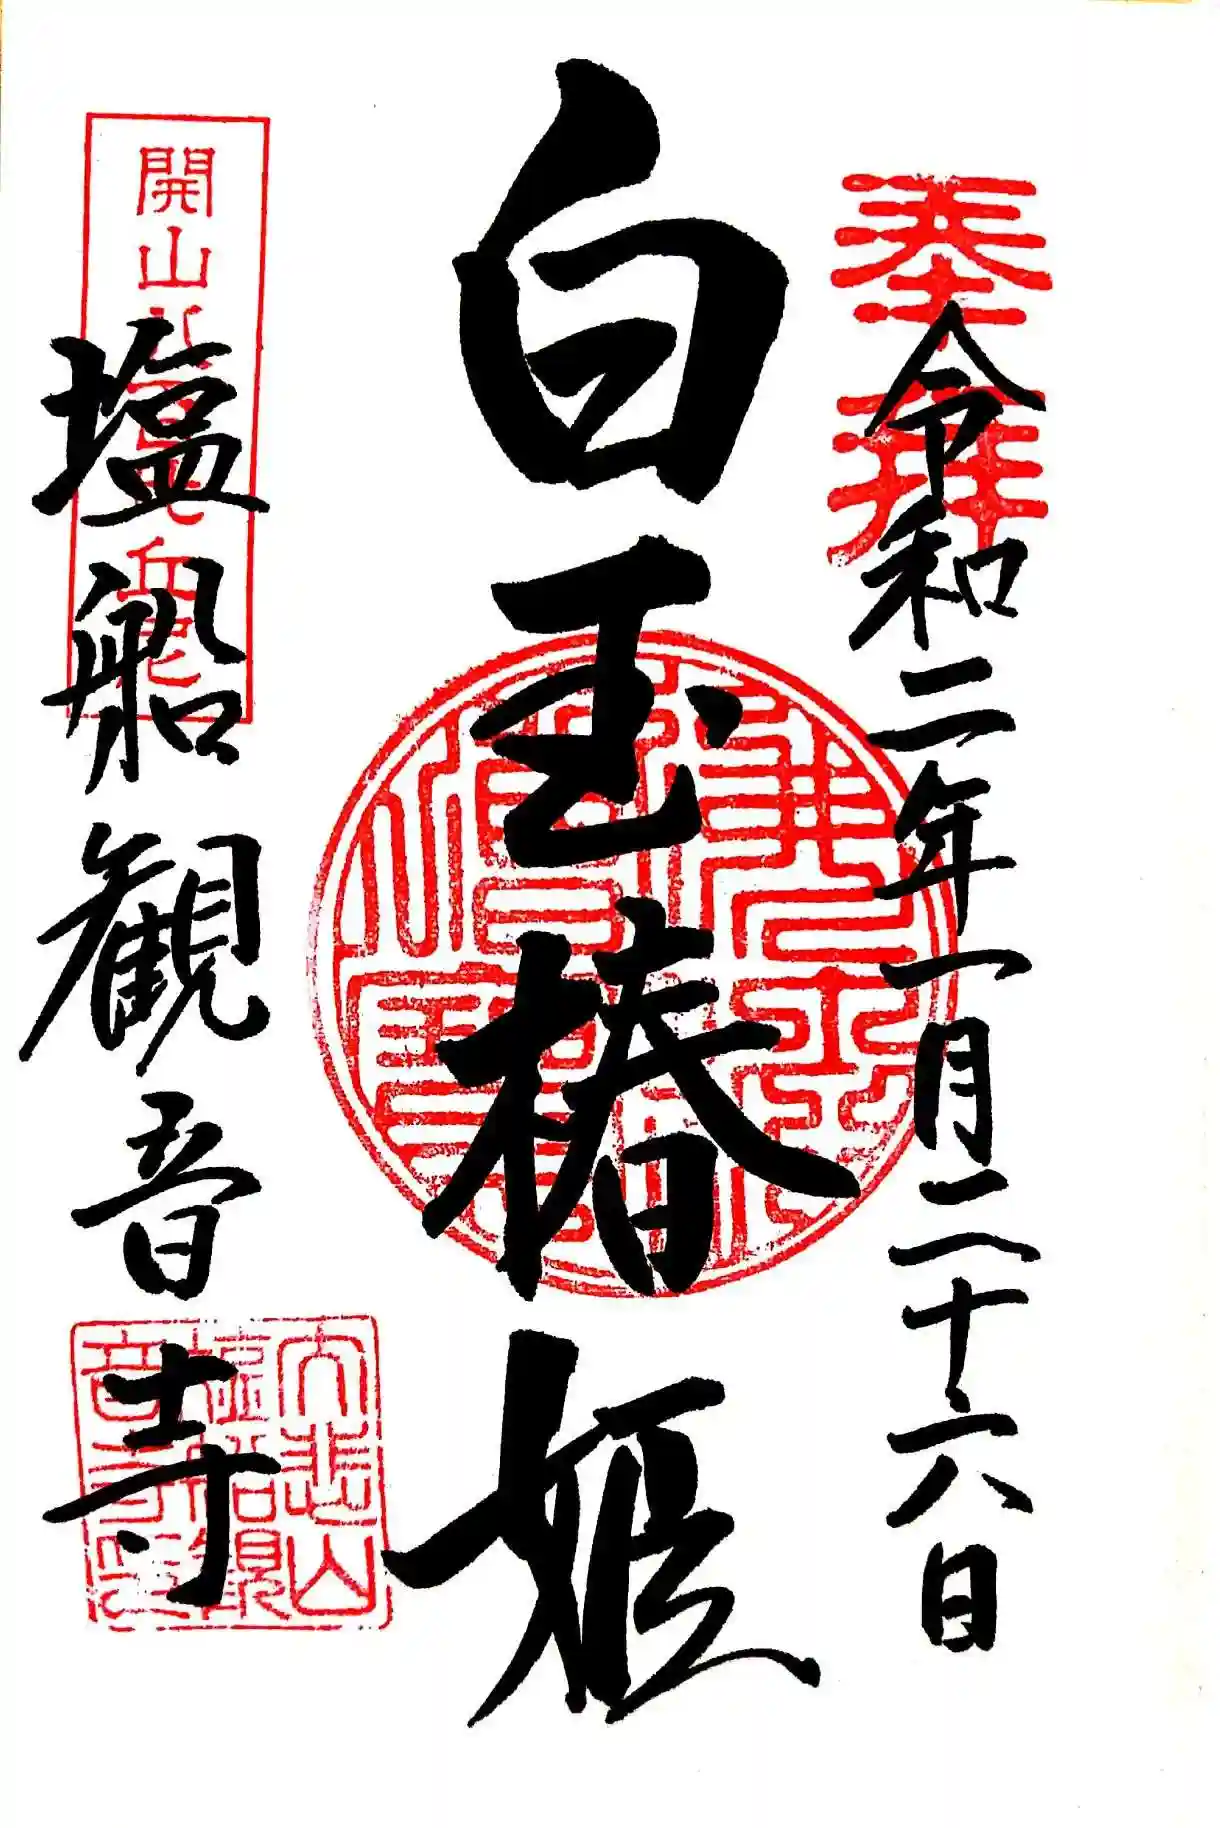 奉拝
令和二年一月二十六日
白玉椿姫
開山
塩船観音寺
大悲山
塩船観
音寺印